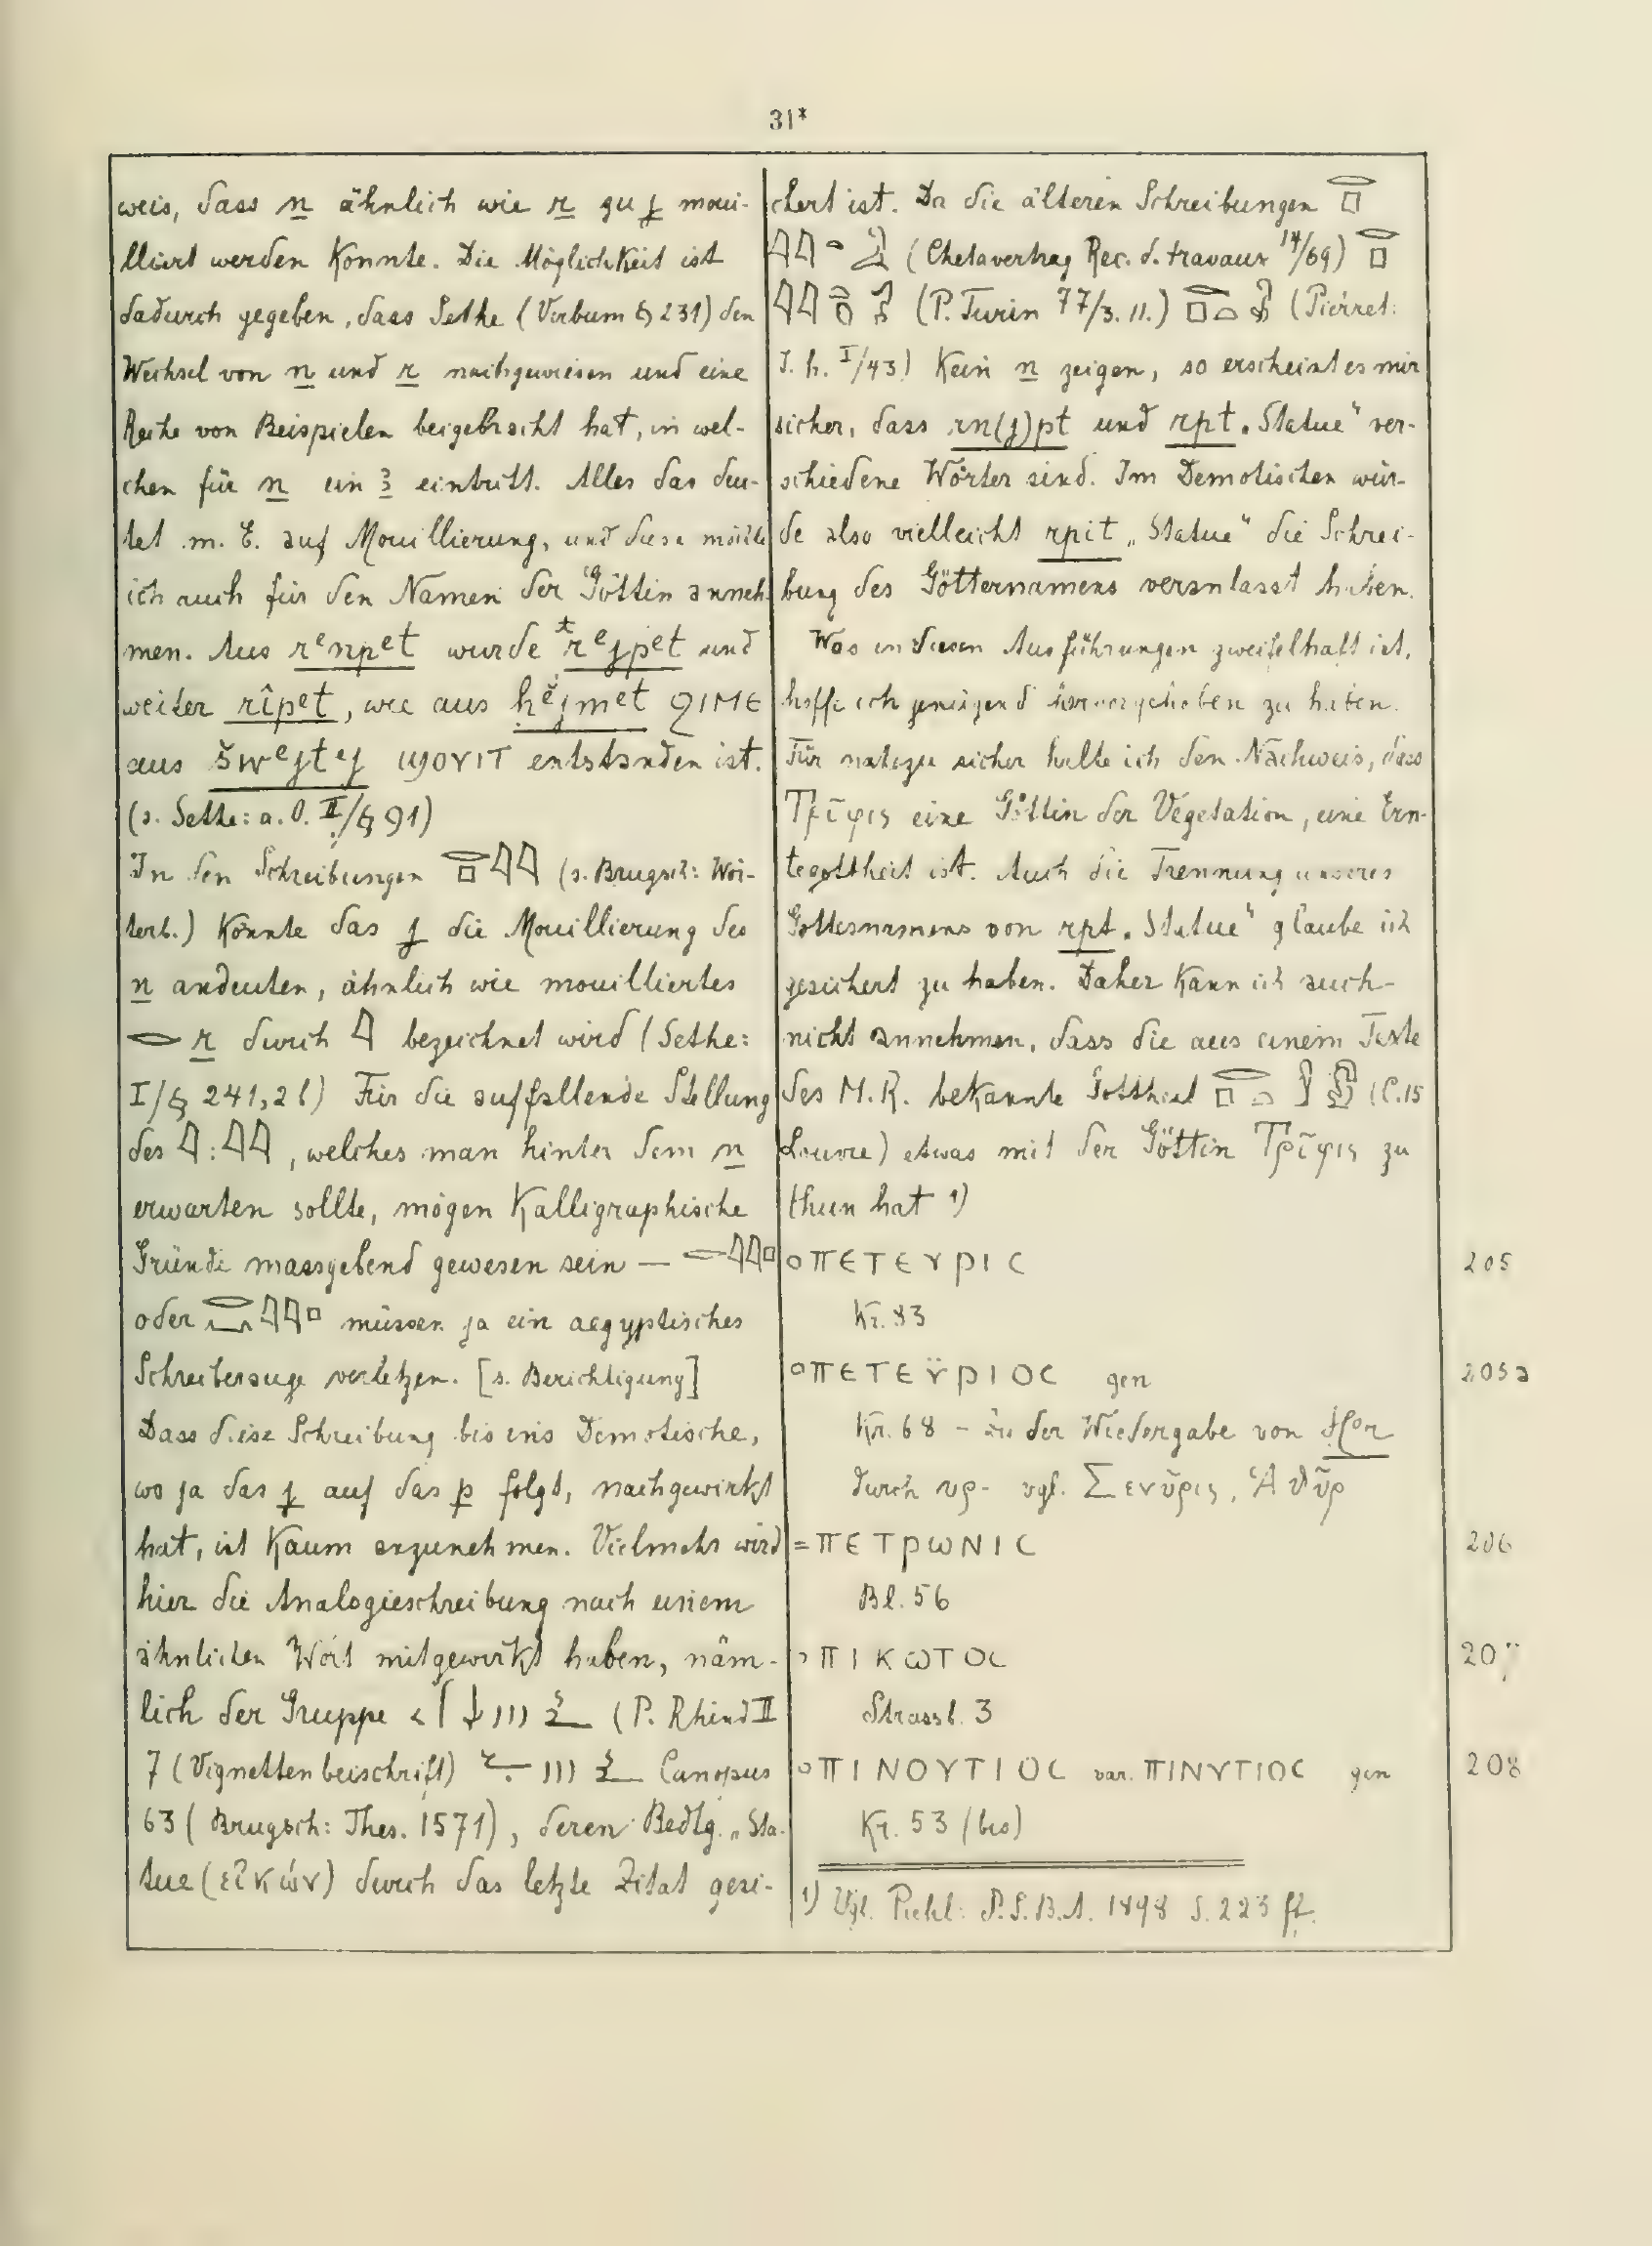 31*
weis, dass n ähnlich wie r zu j moui-
lliert werden könnte. Die Möglichkeit ist
dadurch gegeben, dass Sethe (Verbum § 231) den
Wechsel von n und r nachgewiesen und eine
Reihe von Beispielen beigebracht hat, in wel-
chen für n ein ꜣ eintritt. Alles das deu-
tet m. E. auf Mouillierung, und diese möchte
ich auch für den Namen der Göttin anneh-
men. Aus rᵉnpet wurde *rᵉjpet und
weiter rîpet, wie aus hĕjmet ϩⲓⲙⲉ
aus šwᵉjtej ϣⲟⲩⲓⲧ entstanden ist.
(s. Sethe: a. O. II/§ 91)
In den Schreibungen 𓂋𓊪𓇋𓇋 (s. Brugsch: Wör-
terb.) könnte das j die Mouillierung des
n andeuten, ähnlich wie mouilliertes
𓂋 r durch 𓇋 bezeichnet wird (Sethe:
I/§ 241,2b) Für die auffallende Stellung
des 𓇋:𓇋𓇋, welches man hinter dem n
erwarten sollte, mögen Kalligraphische
Gründe massgebend gewesen sein — 𓂋𓇋𓇋𓊪
oder 𓇋𓇋𓊪 müssen ja ein aegyptisches
Schreiberauge verletzen. [s. Berichtigung]
Dass diese Schreibung bis ins Demotische,
wo ja das j auf das p folgt, nachgewirkt
hat, ist Kaum anzunehmen. Vielmehr wird
hier die Analogieschreibung nach einem
ähnlichen Wort mitgewirkt haben, näm-
lich der Gruppe (P. Rhind II
7 (Vignettenbeischrift) Canopus
63 (Brugsch: Thes. 1571), deren Bedtg. „Sta-
tue (εἰκών) durch das letzte Zitat gesi-
chert ist. Da die älteren Schreibungen 𓂋𓊪
𓇋𓇋 (Chetavertrag Rec. d. travaux 14/69) 𓂋𓊪
𓇋𓇋 (P. Turin 77/3. 11.) (Pierret:
J. h. I/43) Kein n zeigen, so erscheint es mir
sicher, dass rn(j)pt und rpt „Statue" ver-
schiedene Wörter sind. Im Demotischen wür-
de also vielleicht rpit „Statue" die Schrei-
bung des Götternamens veranlasst haben.
Was in diesen Ausführungen zweifelhaft ist,
hoffe ich genügend hervorgehoben zu haben.
Für nahezu sicher halte ich den Nachweis, dass
Τρῖφις eine Göttin der Vegetation, eine Ern-
tegottheit ist. Auch die Trennung unseres
Gottesnamens von rpt „Statue" glaube ich
gesichert zu haben. Daher Kann ich auch
nicht annehmen, dass die aus einem Texte
des M. R. bekannte Gottheit (C.15
Louvre) etwas mit der Göttin Τρῖφις zu
thun hat ¹)
○ΠΕΤΕΥΡΙC 205
Kr. 83
○ΠΕΤΕΫΡΙΟC gen 205a
Kr. 68 - Zu der Wiedergabe von Hor
durch υρ- vgl. Σενῦρις, Ἁθῦρ
=ΠΕΤΡωΝΙC 206
Bl. 56
○ΠΙΚωΤΟC 207
Strassb. 3
○ΠΙΝΟΥΤΙΟC var. ΠΙΝΥΤΙΟC gen 208
Kr. 53 (bis)
¹) Vgl. Piehl: P.S.B.A. 1898 S. 223 ff.